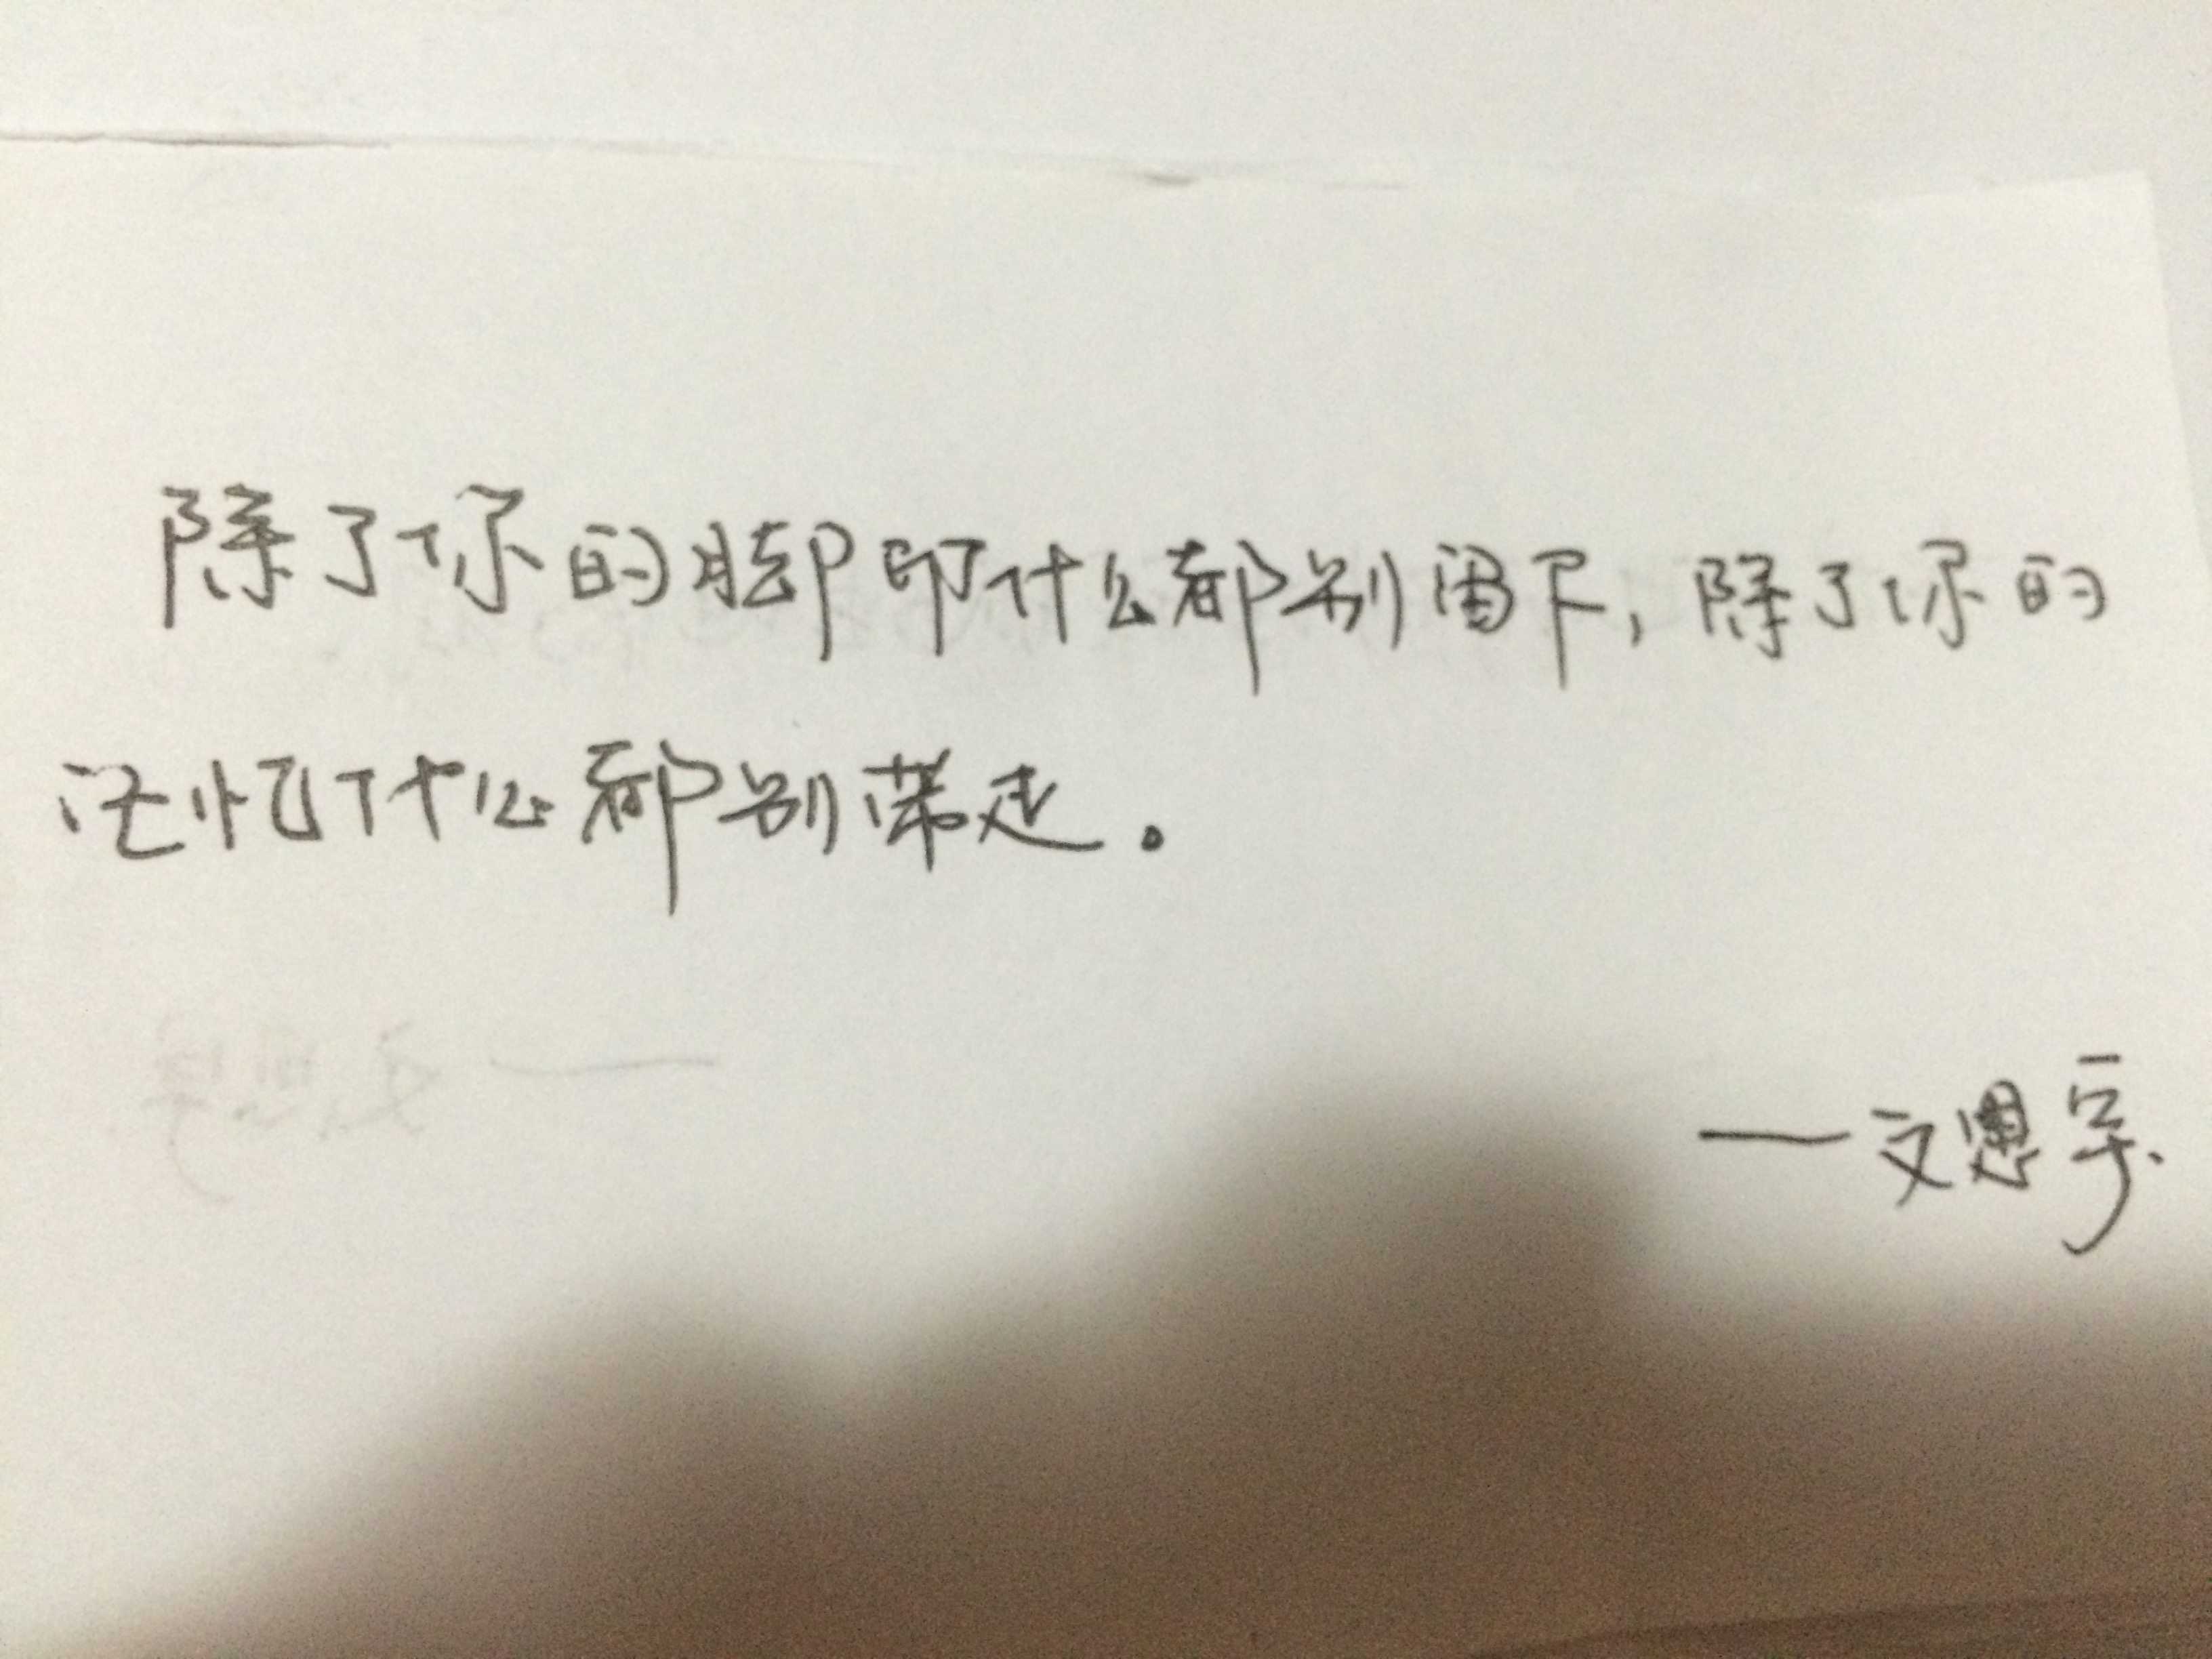 除了你的脚印什么都别留下，除了你的
记忆什么都别带走。
——文思宇